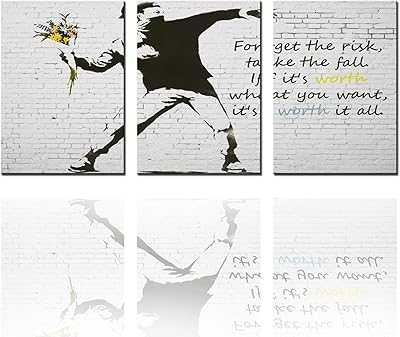 Forget the risk,
take the fall.
If it's worth
what you want,
it's worth it all.